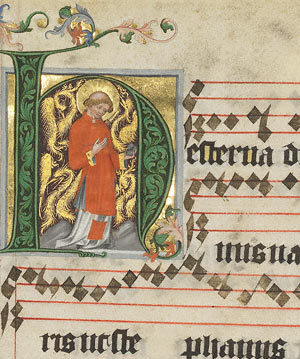 Hesterna d
nus na
ris ut ste phanus